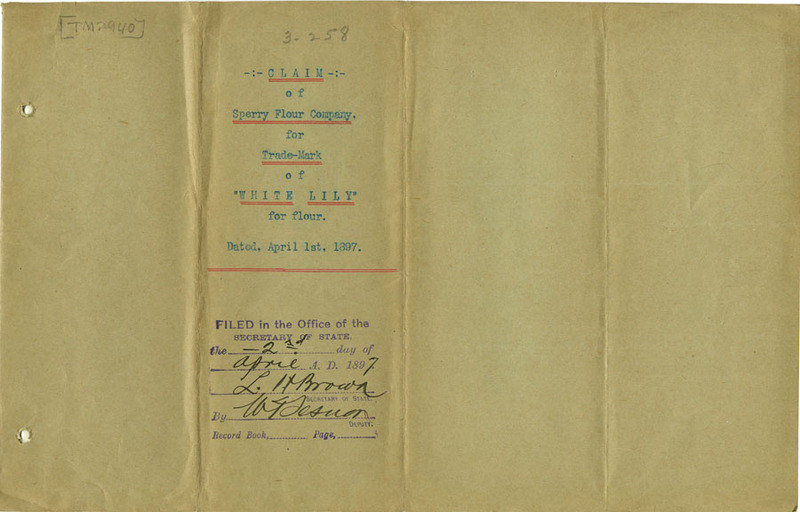 [TM-2940]
3-258
-:- CLAIM -:-
of
Sperry Flour Company.
for
Trade-Mark
of
"WHITE LILY"
for flour.
Dated, April 1st, 1897.
FILED in the Office of the
SECRETARY OF STATE.
the 2nd day of
April A. D. 1897
L. H Brown
SECRETARY OF STATE.
By
DEPUTY.
Record Book, Page,